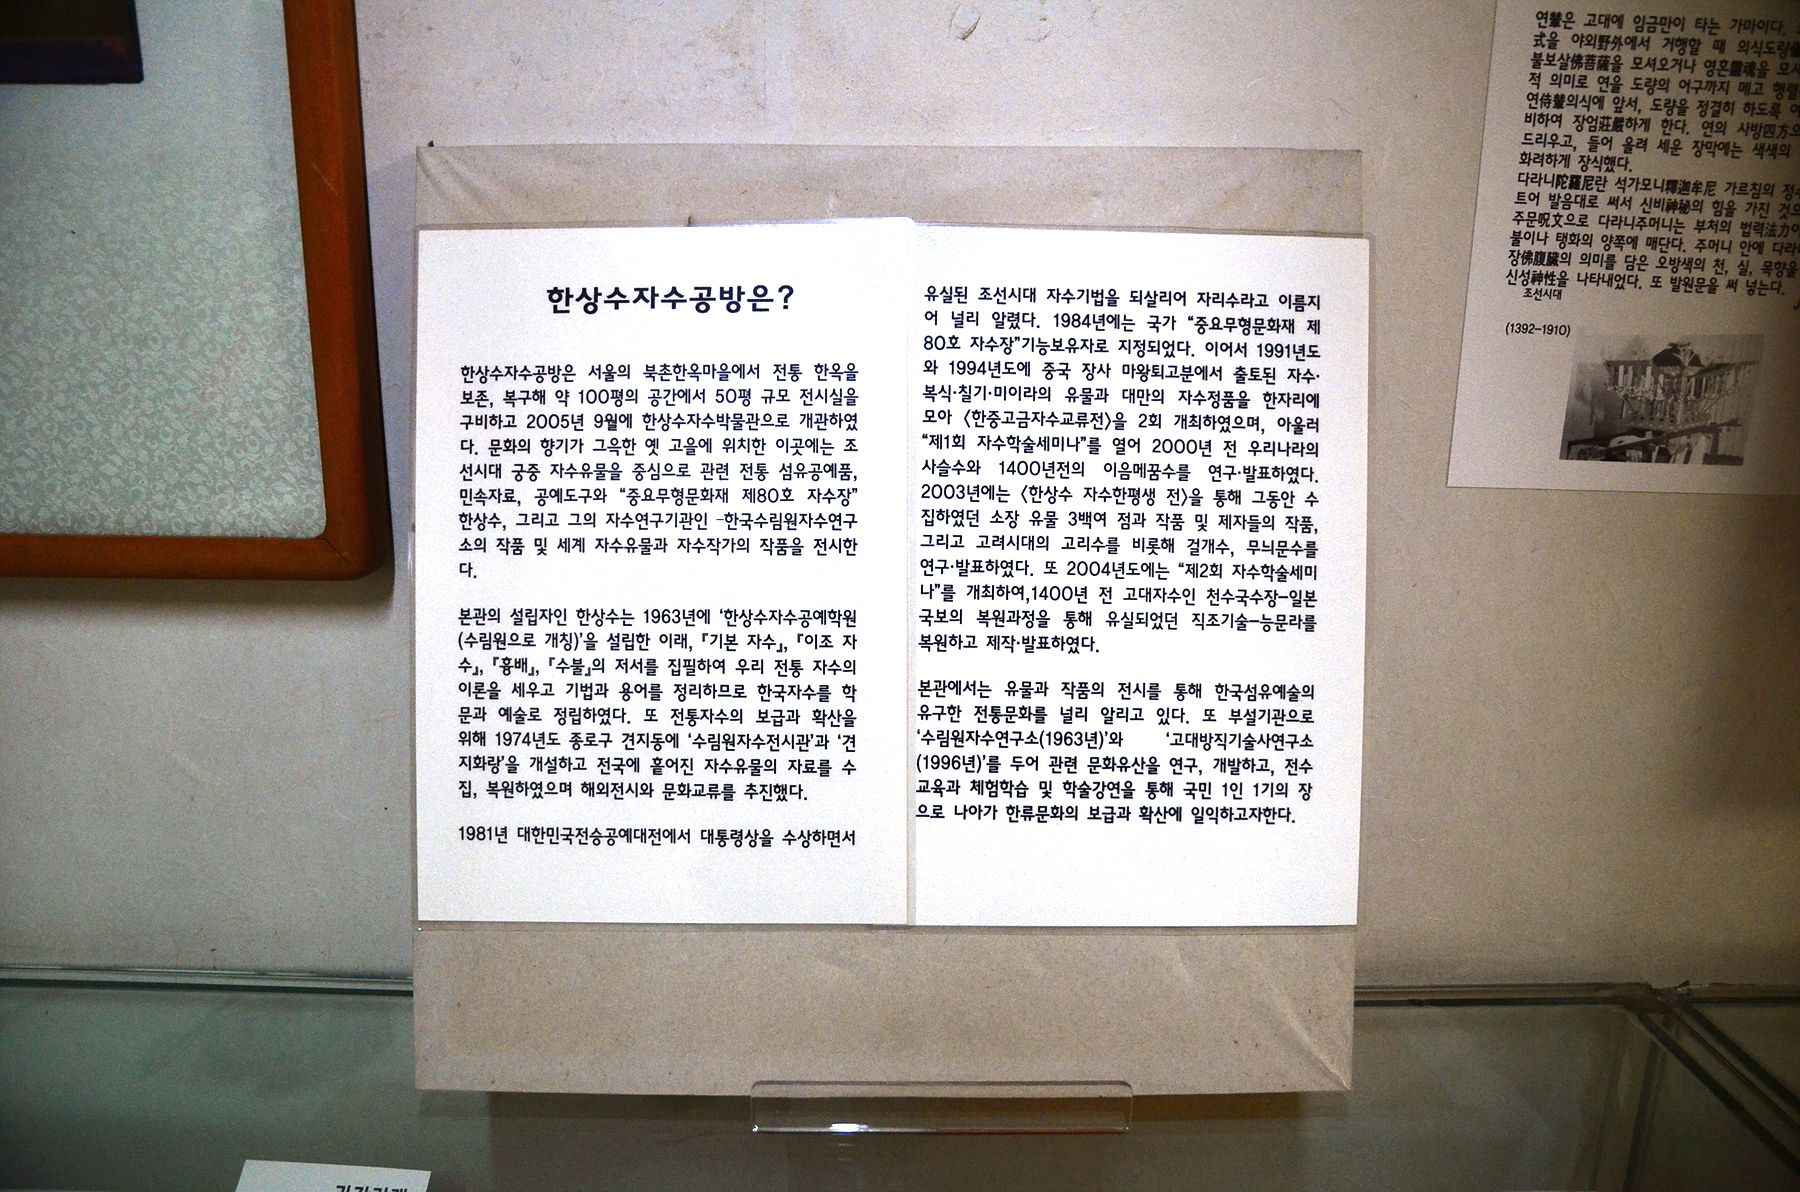 한상수자수공방은?
한상수자수공방은 서울의 북촌한옥마을에서 전통 한옥을
보존, 복구해 약 100평의 공간에서 50평 규모 전시실을
구비하고 2005년 9월에 한상수자수박물관으로 개관하였
다. 문화의 향기가 그윽한 옛 고을에 위치한 이곳에는 조
선시대 궁중 자수유물을 중심으로 관련 전통 섬유공예품,
민속자료, 공예도구와 “중요무형문화재 제80호 자수장”
한상수, 그리고 그의 자수연구기관인 -한국수림원자수연구
소의 작품 및 세계 자수유물과 자수작가의 작품을 전시한
다.
본관의 설립자인 한상수는 1963년에 ‘한상수자수공예학원
(수림원으로 개칭)’을 설립한 이래, 『기본 자수』, 『이조 자
수』, 『흉배』, 『수불』의 저서를 집필하여 우리 전통 자수의
이론을 세우고 기법과 용어를 정리하므로 한국자수를 학
문과 예술로 정립하였다. 또 전통자수의 보급과 확산을
위해 1974년도 종로구 견지동에 ‘수림원자수전시관’과 ‘견
지화랑’을 개설하고 전국에 흩어진 자수유물의 자료를 수
집, 복원하였으며 해외전시와 문화교류를 추진했다.
1981년 대한민국전승공예대전에서 대통령상을 수상하면서
유실된 조선시대 자수기법을 되살리어 자리수라고 이름지
어 널리 알렸다. 1984년에는 국가 “중요무형문화재 제
80호 자수장”기능보유자로 지정되었다. 이어서 1991년도
와 1994년도에 중국 장사 마왕퇴고분에서 출토된 자수·
복식·칠기·미이라의 유물과 대만의 자수정품을 한자리에
모아 〈한중고금자수교류전〉을 2회 개최하였으며, 아울러
“제1회 자수학술세미나”를 열어 2000년 전 우리나라의
사슬수와 1400년전의 이음메꿈수를 연구·발표하였다.
2003년에는 〈한상수 자수한평생 전〉을 통해 그동안 수
집하였던 소장 유물 3백여 점과 작품 및 제자들의 작품,
그리고 고려시대의 고리수를 비롯해 걸개수, 무늬문수를
연구·발표하였다. 또 2004년도에는 “제2회 자수학술세미
나”를 개최하여,1400년 전 고대자수인 천수국수장-일본
국보의 복원과정을 통해 유실되었던 직조기술-능문라를
복원하고 제작·발표하였다.
본관에서는 유물과 작품의 전시를 통해 한국섬유예술의
유구한 전통문화를 널리 알리고 있다. 또 부설기관으로
‘수림원자수연구소(1963년)’와 ‘고대방직기술사연구소
(1996년)’를 두어 관련 문화유산을 연구, 개발하고, 전수
교육과 체험학습 및 학술강연을 통해 국민 1인 1기의 장
으로 나아가 한류문화의 보급과 확산에 일익하고자한다.
연輦은 고대에 임금만이 타는 가마이다.
式을 야외野外에서 거행할 때 의식도량
불보살佛菩薩을 모셔오거나 영혼靈魂을 모셔
적 의미로 연을 도량의 어구까지 메고 행렬
연侍輦의식에 앞서, 도량을 정결히 하도록
비하여 장엄莊嚴하게 한다. 연의 사방四方으
드리우고, 들어 올려 세운 장막에는 색색의
화려하게 장식했다.
다라니陀羅尼란 석가모니釋迦牟尼 가르침의 정수
트어 발음대로 써서 신비神秘의 힘을 가진 것으
주문呪文으로 다라니주머니는 부처의 법력法力이
불이나 탱화의 양쪽에 매단다. 주머니 안에 다라니
장佛腹臟의 의미를 담은 오방색의 천, 실, 목향을
신성神性을 나타내었다. 또 발원문을 써 넣는다.
조선시대
(1392-1910)